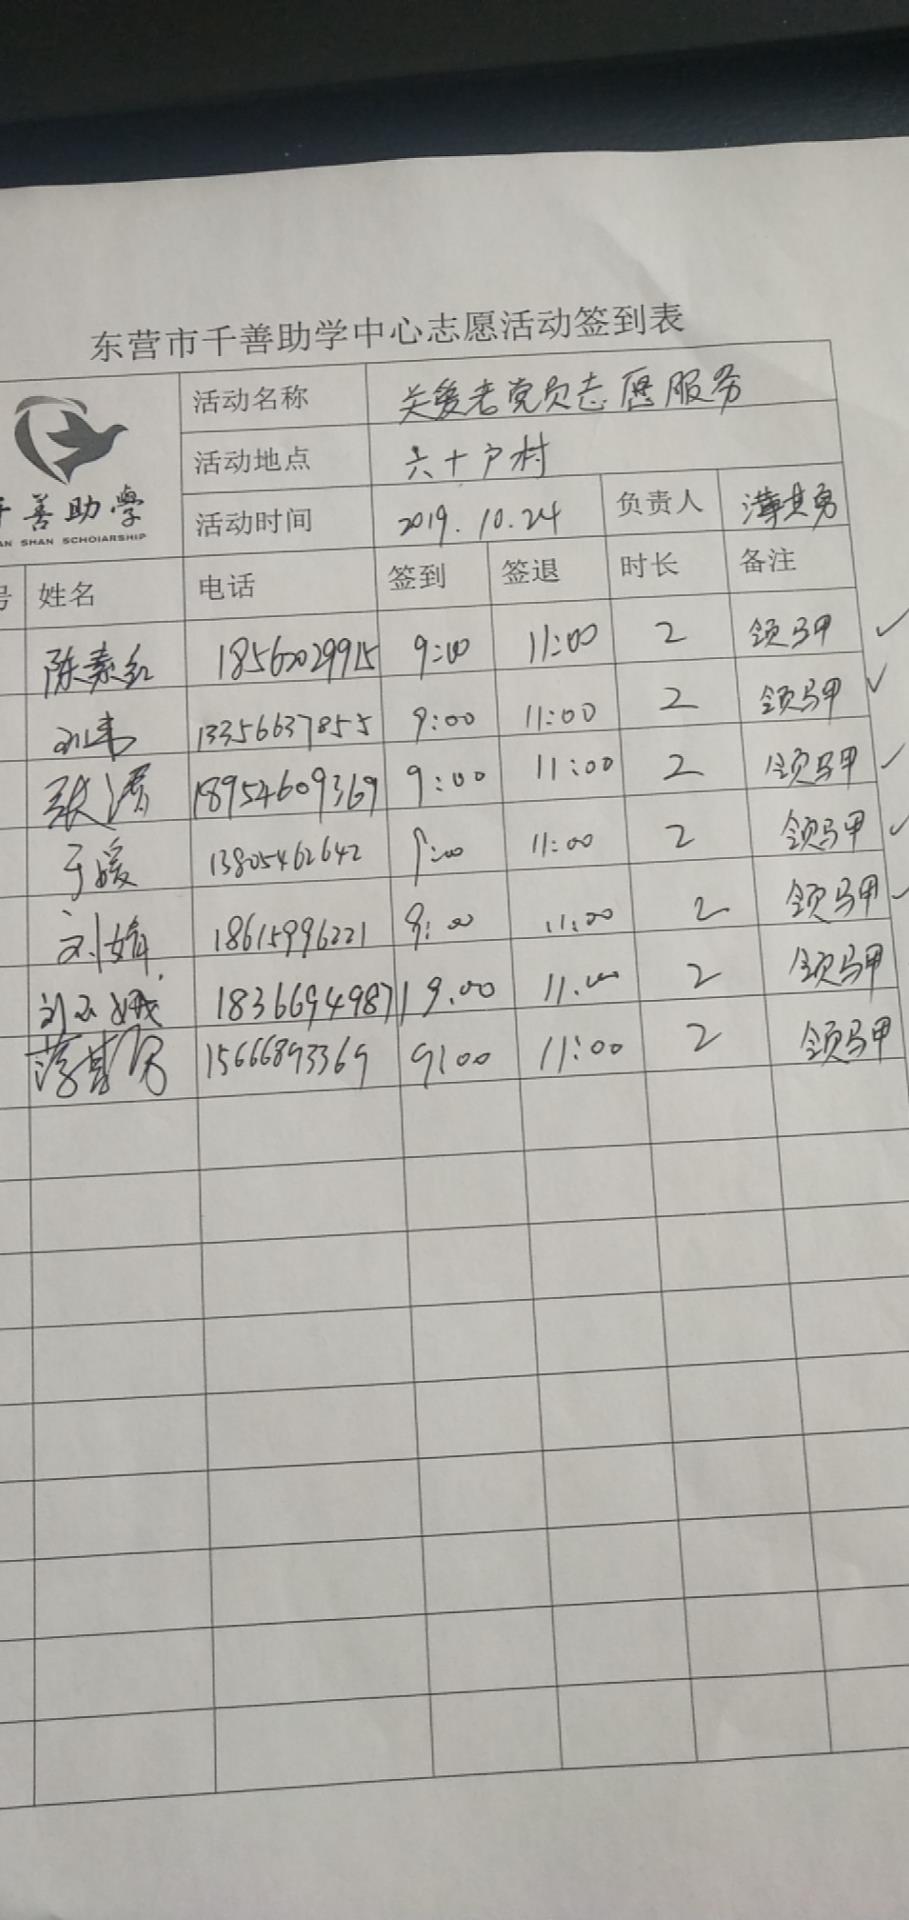 东营市千善助学中心志愿活动签到表
活动名称 关爱老党员志愿服务
活动地点 六十户村
活动时间 2019.10.24 负责人 薄其勇
千善助学
AN SHAN SCHOIARSHIP
号 姓名 电话 签到 签退 时长 备注
陈素红 18562029915 9:00 11:00 2 领马甲 ✓
刘伟 13356637855 9:00 11:00 2 领马甲 ✓
张涛 18954609369 9:00 11:00 2 领马甲 ✓
于媛 13805462642 9:00 11:00 2 领马甲 ✓
刘婧 18615996221 9:00 11:00 2 领马甲 ✓
18366949871 9.00 11.00 2 领马甲
15666893369 9:00 11:00 2 领马甲